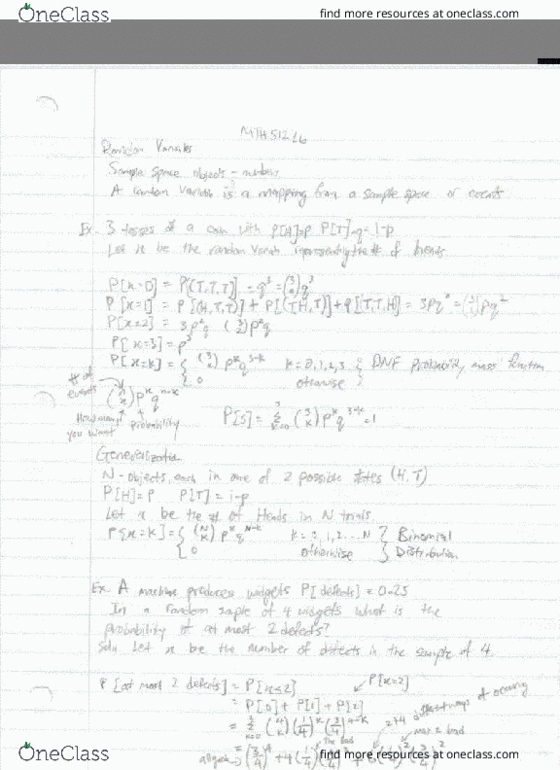 OneClass
find more resources at oneclass.com
MTH 512 L6
Random Variables
Sample Space objects - numbers
A random variable is a mapping from a sample space or events
Ex. 3 tosses of a coin with P[H]=p P[T]=q=1-p
Let x be the random variable representing the # of
P[x=0] = P[(T,T,T)] = q³ = (3 0) q³
P[x=1] = P[(H,T,T)] + P[(T,H,T)] + P[T,T,H] = 3pq² = (3 1) pq²
P[x=2] = 3p²q (3 2) p²q
P[x=3] = p³
P[x=k] = { (3 k) p^k q^3-k k=0,1,2,3 } probability mass function
0 otherwise
# of
events
(n x) p^x q^n-x
How many probability
you want
P[S] = Σ k=0 3 (3 k) p^k q^3-k = 1
Generalization
N-objects, each in one of 2 possible states (H,T)
P[H]=P P[T]=1-p
Let x be the # of Heads in N trials
P[x=k] = { (N k) p^k q^N-k k=0,1,2...N } Binomial
0 otherwise } Distribution
Ex. A machine produces widgets P[defects] = 0.25
In a random sample of 4 widgets what is the
probability of at most 2 defects?
Soln Let x be the number of defects in the sample of 4.
P[at most 2 defects] = P[x≤2] P[x=2]
= P[0] + P[1] + P[2] different ways of occuring
= Σ k=0 2 (4 k) (1/4)^k (3/4)^4-k
2 bad
= (3/4)⁴ + 4(1/4)
OneClass
find more resources at oneclass.com